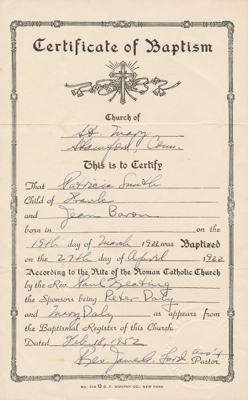 Certificate of Baptism
Church of
St. Mary
Stamford, Conn.
This is to Certify
That Patricia Smith
Child of Frank
and Jean Baron
born in on the
19th day of March 1922 was Baptized
on the 27th day of April 1922
According to the Rite of the Roman Catholic Church
by the Rev. Paul Keating
the Sponsors being Peter Daly
and Mary Daly as appears from
the Baptismal Register of this Church.
Dated Feb. 18, 1952
Rev. James Ford Ass't
Pastor